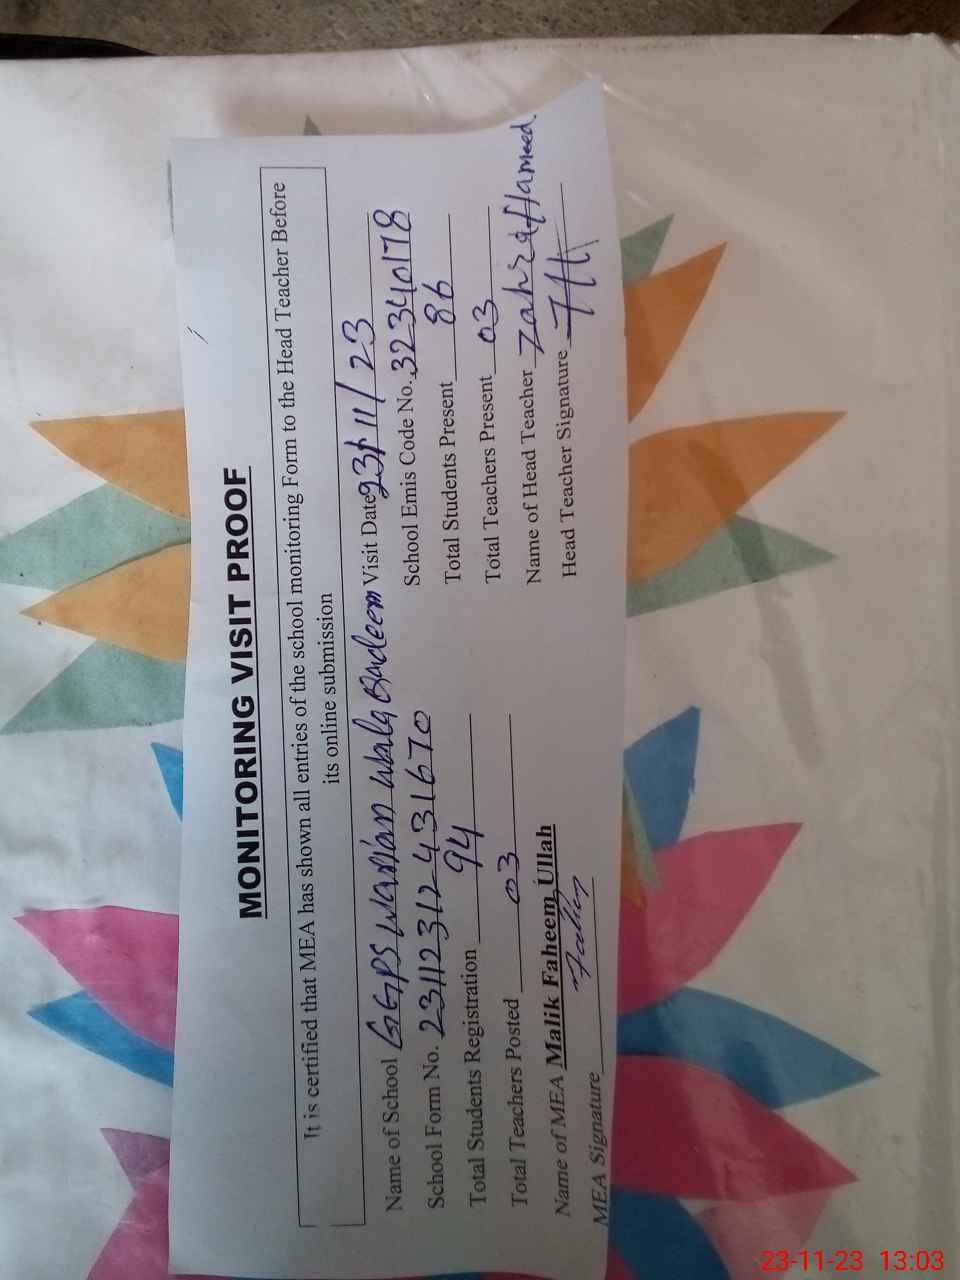 MONITORING VISIT PROOF
It is certified that MEA has shown all entries of the school monitoring Form to the Head Teacher Before
its online submission
Name of School GGPS Wadian Wala Badeem Visit Date 23/11/23
School Form No. 2311231243 1670 School Emis Code No. 32340178
Total Students Registration 94 Total Students Present 86
Total Teachers Posted 03 Total Teachers Present 03
Name of MEA Malik Faheem Ullah Name of Head Teacher Zahra Hameed
MEA Signature Head Teacher Signature
23-11-23 13:03